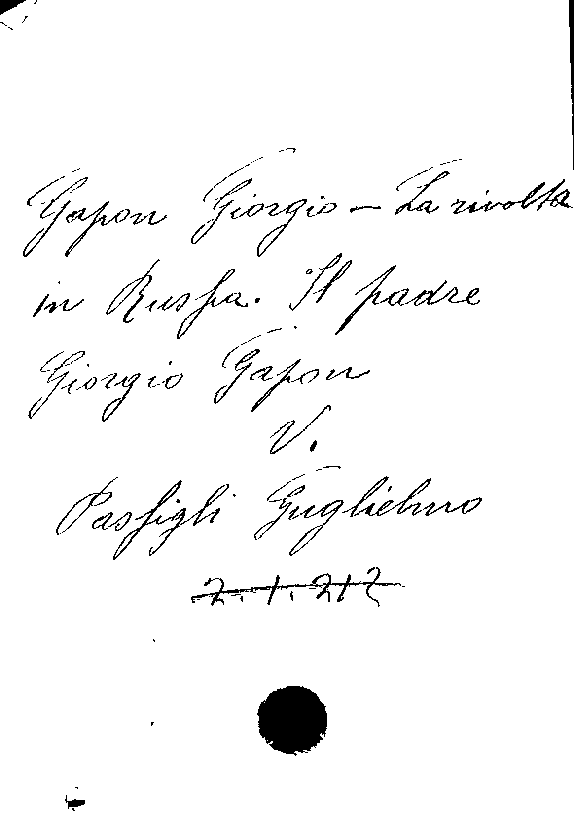 Gapon Giorgio - La rivolta
in Russia. Il padre
Giorgio Gapon
V.
Passigli Guglielmo
2.1.212